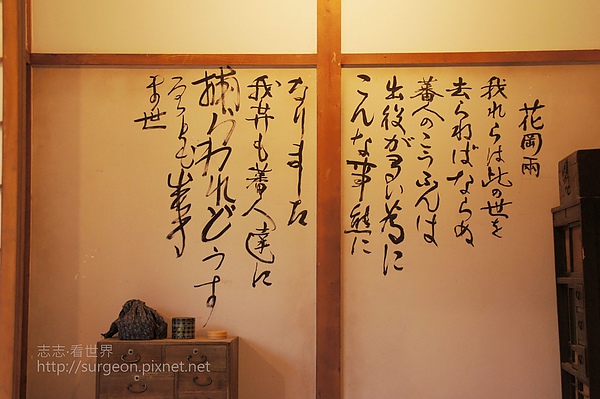 花岡兩
我れらは此の世を
去らねばならぬ
蕃人のこうふんは
出役が多い為に
こんな事態に
なりました
我等も蕃人達に
捕らわれどうす
ることも出来
ませ
志志·看世界
http://surgeon.pixnet.net